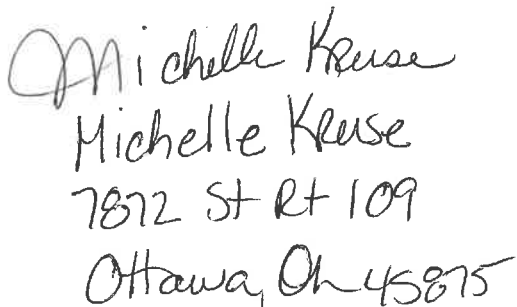 Michelle Kruse
Michelle Kruse
7872 St Rt 109
Ottawa, Oh 45875